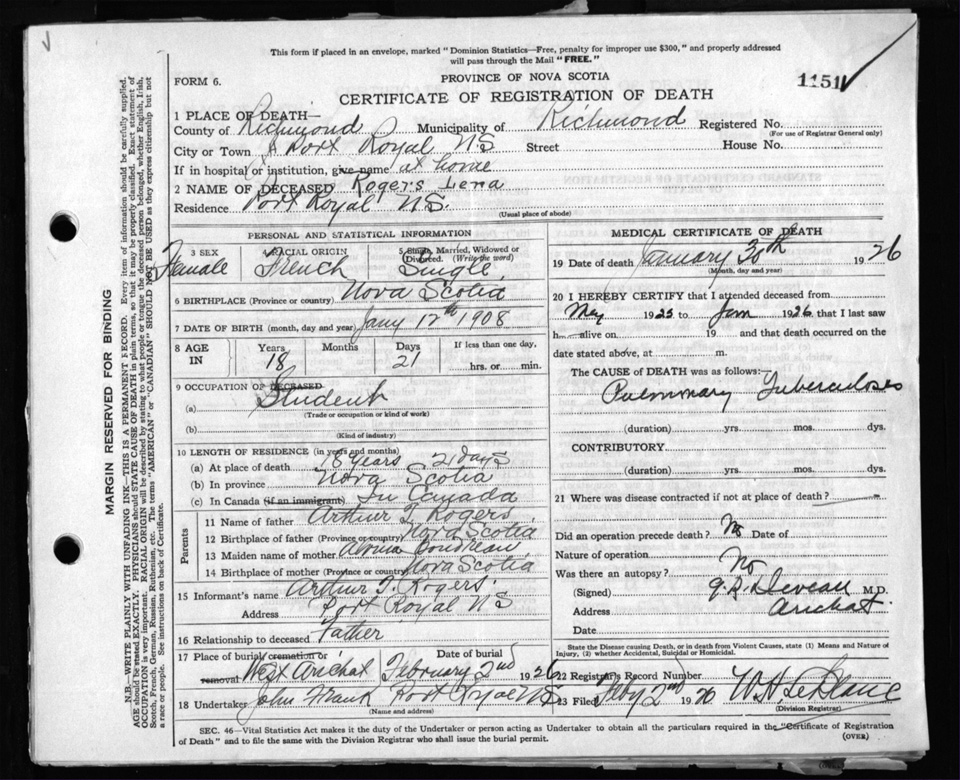 This form if placed in an envelope, marked "Dominion Statistics—Free, penalty for improper use $300," and properly addressed
will pass through the Mail "FREE."
FORM 6.
PROVINCE OF NOVA SCOTIA
1151
CERTIFICATE OF REGISTRATION OF DEATH
1 PLACE OF DEATH—
County of Richmond Municipality of Richmond Registered No.
(For use of Registrar General only)
City or Town Port Royal N S Street House No.
If in hospital or institution, give name at home
2 NAME OF DECEASED Rogers Lena
Residence Port Royal N S.
(Usual place of abode)
PERSONAL AND STATISTICAL INFORMATION
3 SEX 4 RACIAL ORIGIN 5 Single, Married, Widowed or Divorced. (Write the word)
Female French Single
6 BIRTHPLACE (Province or country) Nova Scotia
7 DATE OF BIRTH (month, day and year) Jany 12th 1908
8 AGE IN Years Months Days If less than one day,
18 21 hrs. or min.
9 OCCUPATION OF DECEASED
(a) Student
(Trade or occupation or kind of work)
(b)
(Kind of industry)
10 LENGTH OF RESIDENCE (in years and months)
(a) At place of death 18 years 21 days
(b) In province Nova Scotia
(c) In Canada (if an immigrant) In Canada
Parents
11 Name of father Arthur T. Rogers
12 Birthplace of father (Province or country) Nova Scotia
13 Maiden name of mother Boudreau
14 Birthplace of mother (Province or country) Nova Scotia
15 Informant's name Arthur T. Rogers.
Address Port Royal N S
16 Relationship to deceased Father
17 Place of burial, cremation or removal Date of burial
West Arichat February 2nd 1926
18 Undertaker John Frank Port Royal N S
(Name and address)
MEDICAL CERTIFICATE OF DEATH
19 Date of death January 30th 1926
(Month, day and year)
20 I HEREBY CERTIFY that I attended deceased from
May 1925 to Jan 1926 that I last saw
h alive on 19 and that death occurred on the
date stated above, at m.
The CAUSE of DEATH was as follows:—
Pulmonary Tuberculoses
(duration) yrs. mos. dys.
CONTRIBUTORY
(duration) yrs. mos. dys.
21 Where was disease contracted if not at place of death?
Did an operation precede death? No Date of
Nature of operation
Was there an autopsy? No
(Signed) Deveau M.D.
Address Arichat
Date
State the Disease causing Death, or in death from Violent Causes, state (1) Means and Nature of
Injury, (2) whether Accidental, Suicidal or Homicidal.
22 Registrar's Record Number
23 Filed Feby 2nd 1926 W A LeBlanc
(Division Registrar)
SEC. 46—Vital Statistics Act makes it the duty of the Undertaker or person acting as Undertaker to obtain all the particulars required in the "Certificate of Registration
of Death" and to file the same with the Division Registrar who shall issue the burial permit.
(OVER)
MARGIN RESERVED FOR BINDING
N.B.—WRITE PLAINLY WITH UNFADING INK—THIS IS A PERMANENT RECORD. Every item of information should be carefully supplied.
AGE should be stated EXACTLY. PHYSICIANS should STATE CAUSE OF DEATH in plain terms, so that it may be properly classified. Exact statement of
OCCUPATION is very important. RACIAL ORIGIN will be described by stating to what people or tongue the deceased person belonged, whether English, Irish,
Scotch, French, German, Russian, Ruthenian, etc. The terms "AMERICAN" or "CANADIAN" SHOULD NOT BE USED as they express citizenship but not
a race or people. See instructions on back of Certificate.